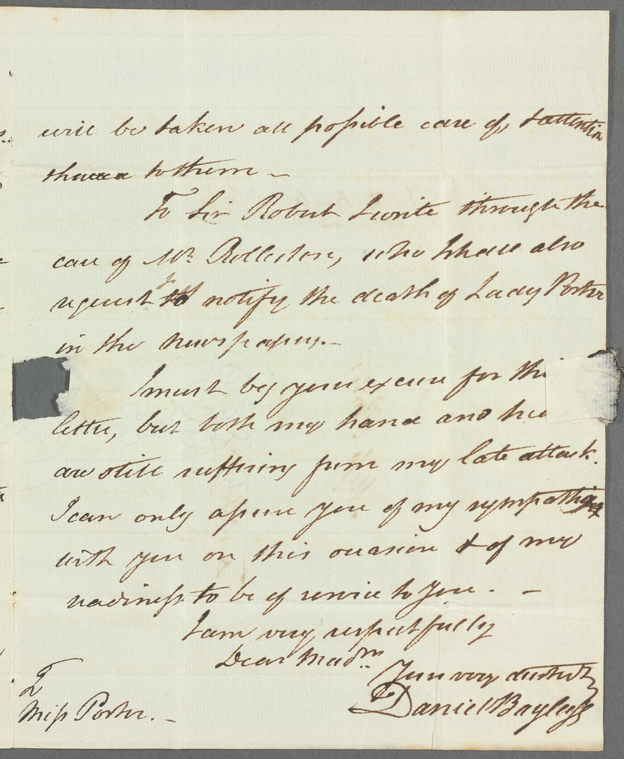 will be taken all possible care of, & attention
to them –
To Sir Robert I write through the
care of Mr. Rolleston, who I shall also
request to notify the death of Lady Porter
in the Newspapers. –
I must beg your excuse for this
letter, but both my hand and
are still suffering from my late attack.
I can only assure you of my sympathizing
with you on this occasion & of my
readiness to be of service to you. –
I am very respectfully
Dear Madm
Your very
Daniel Bayley
To
Miss Porter. –